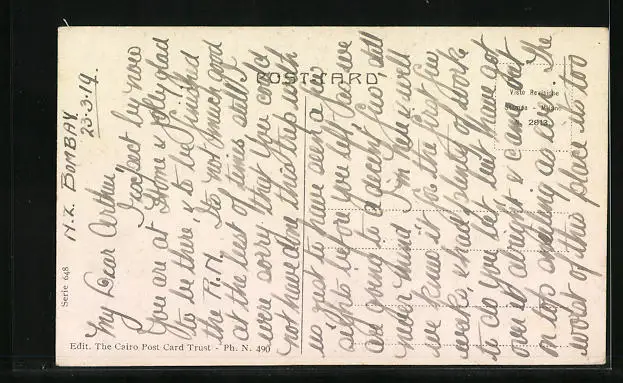 POST CARD
Visto Revisione
Stampa - Milano
N. 2813
Serie 648
Edit. The Cairo Post Card Trust - Ph. N. 490
BOMBAY.
23-3-19.
My Dear Arthur
I expect by now
you are at Home & jolly glad
to be there & to be finished
the R.N. Its not much good
at the best of times still I
were sorry that you could
not have done this trip with
us just to have seen a few
sights before you left for we
are going to a decent few, still
never mind I'm here well
we knew it for the first few
weeks, & had plenty of work
to do you bet, but have got
over it alright & cannot
on top anything as yet. The
worst of this place is too